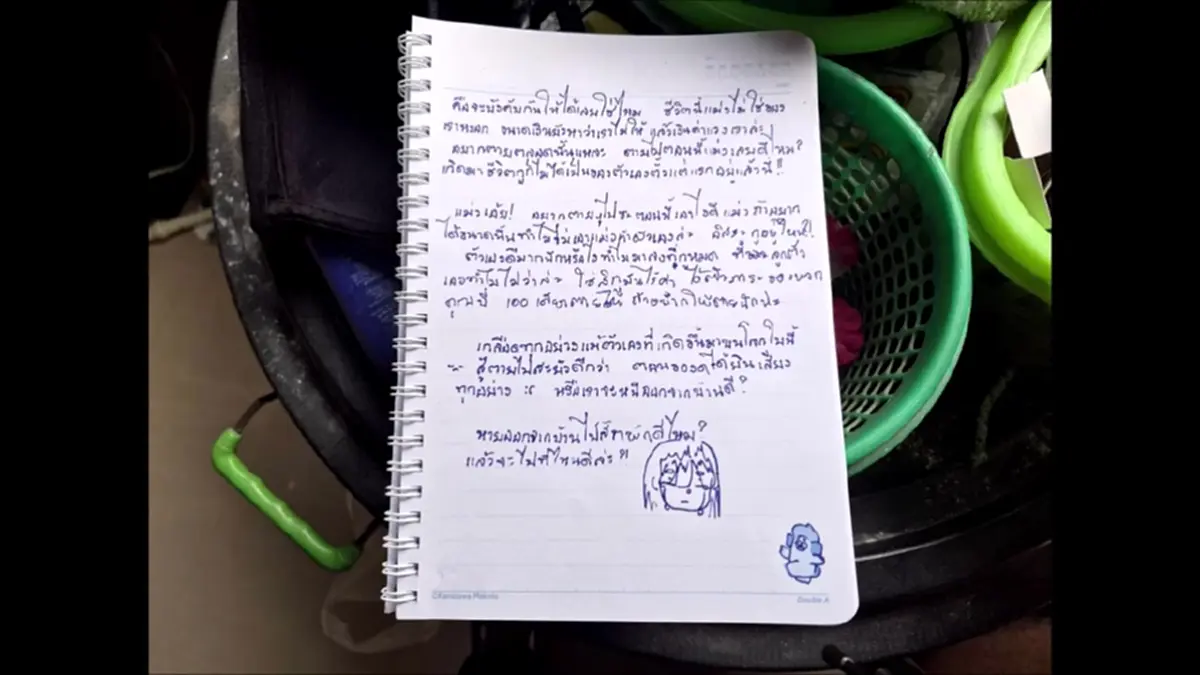 คือจะบังคับกันให้ได้เลยใช่ไหม ชีวิตนี้แม่งไม่ใช่ของ
เราหรอก ขนาดเงินยังหาว่าเราไม่ให้ แล้วเงินค่าแรงเราล่ะ
อยากตายตลอดนั้นแหละ ตายไปตอนนี้แม่งเลยดีไหม?
เกิดมาชีวิตกูก็ไม่ได้เป็นของตัวเองตั้งแต่แรกอยู่แล้วนี่!!
แม่งเอ้ย! อยากตายๆไปซะตอนนี้เลยไงดี แม่ง ถ้าอยาก
ได้ขนาดนั้นทำไมไม่ ล่ะ อิสระกูอยู่ไหน?!
ตัวเองดีมากนักหรือไงทำไมมาลงที่กูหมด ที ลูกตัว
เองทำไมไม่ว่าล่ะ ใช่สิกูมันไร้ค่า ภาระของพวก
คุณนี่ เดี๋ยวตายให้ ถ้าอยากให้ตายนักน่ะ
เกลียดทุกอย่างแม้ตัวเองที่เกิดขึ้นมาบนโลกใบนี้
สู้ตายไปสะยังดีกว่า ได้ยินเสียง
ทุกอย่าง :( หรือเราจะหนีออกจากบ้านดี?
หายออกจากบ้านไปสักพักดีไหม?
แล้วจะไปที่ไหนดีล่ะ?!
Double A